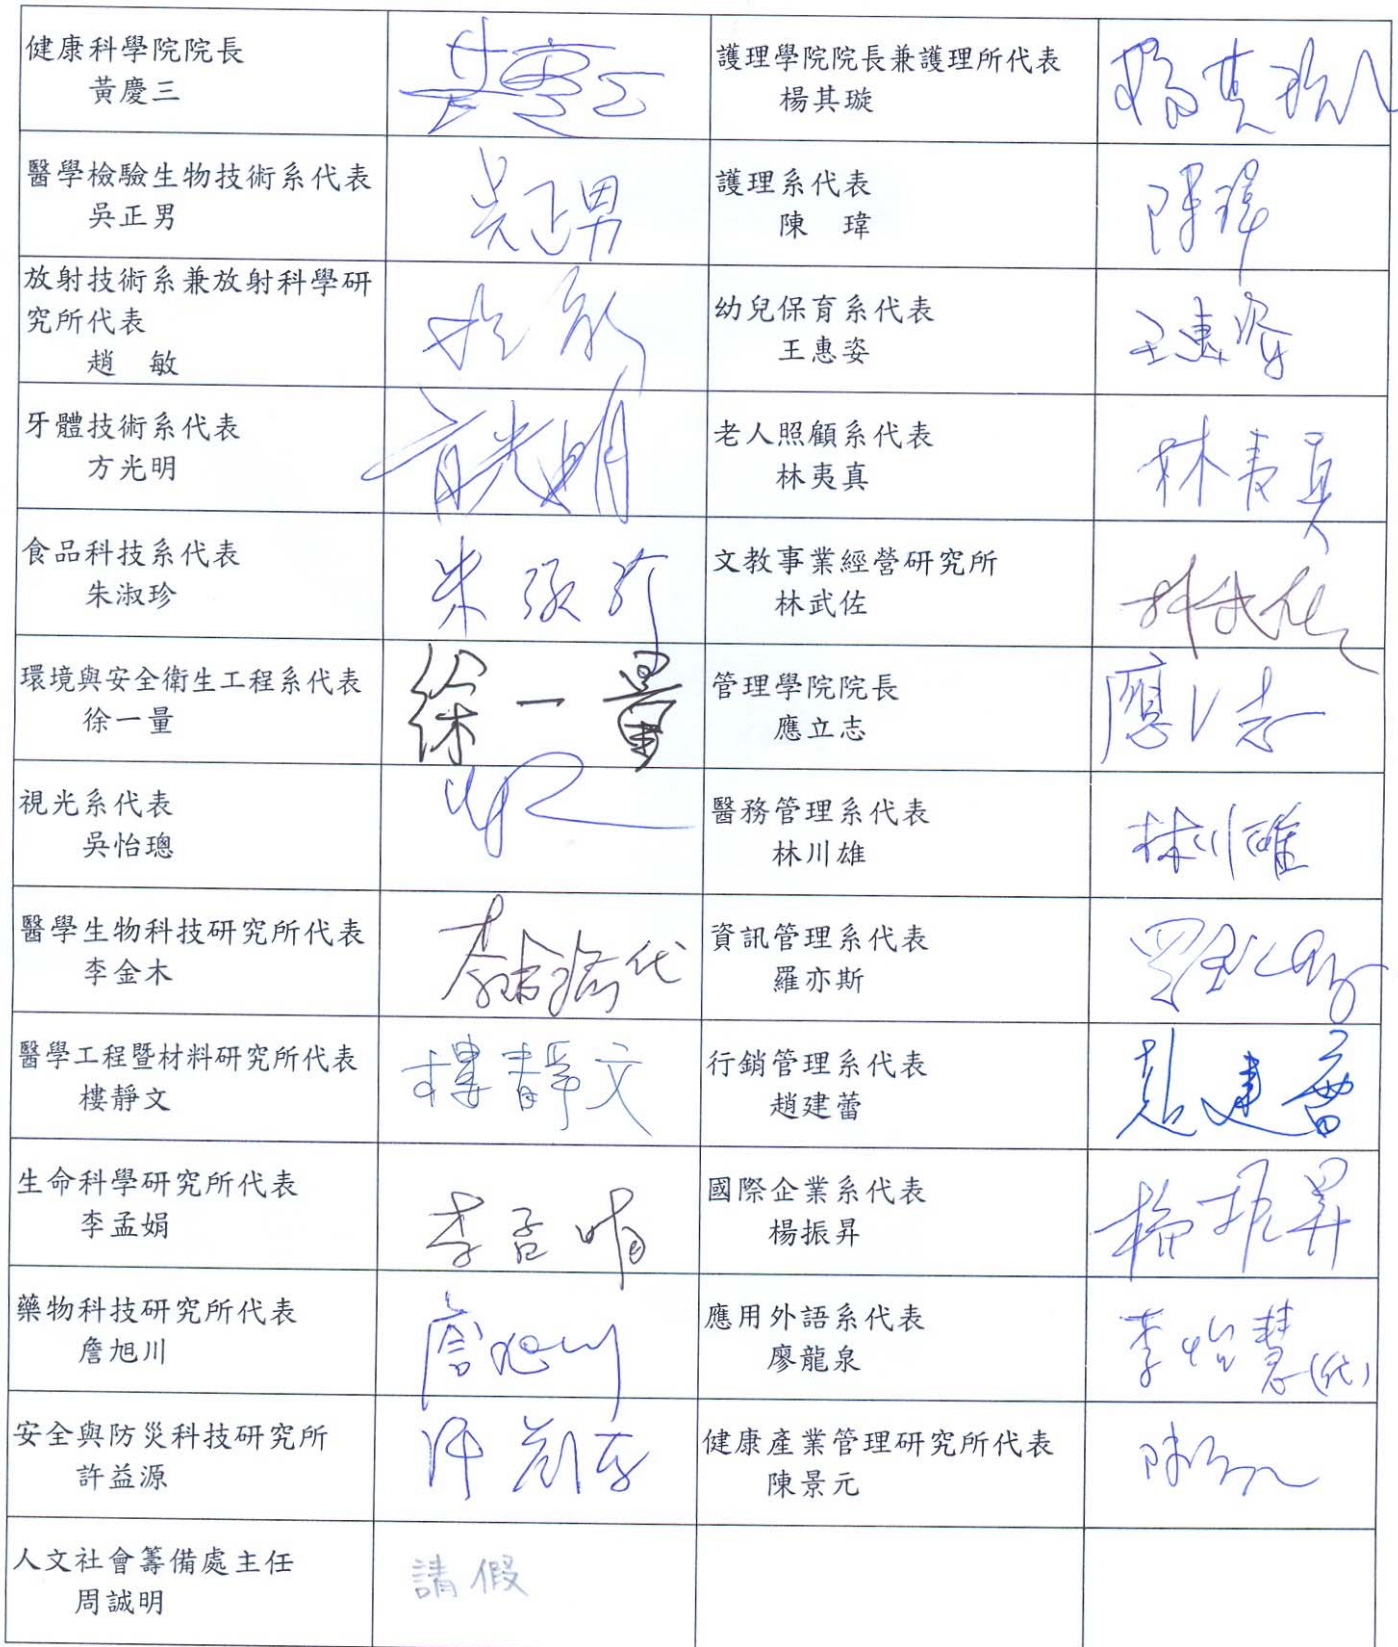 健康科學院院長
黃慶三
護理學院院長兼護理所代表
楊其璇
楊其璇
醫學檢驗生物技術系代表
吳正男
吳正男
護理系代表
陳 瑋
陳瑋
放射技術系兼放射科學研
究所代表
趙 敏
幼兒保育系代表
王惠姿
王惠姿
牙體技術系代表
方光明
老人照顧系代表
林夷真
林夷真
食品科技系代表
朱淑珍
朱淑珍
文教事業經營研究所
林武佐
林武佐
環境與安全衛生工程系代表
徐一量
徐一量
管理學院院長
應立志
應立志
視光系代表
吳怡璁
醫務管理系代表
林川雄
林川雄
醫學生物科技研究所代表
李金木
資訊管理系代表
羅亦斯
醫學工程暨材料研究所代表
樓靜文
樓靜文
行銷管理系代表
趙建蕾
趙建蕾
生命科學研究所代表
李孟娟
李孟娟
國際企業系代表
楊振昇
楊振昇
藥物科技研究所代表
詹旭川
詹旭川
應用外語系代表
廖龍泉
李怡慧(代)
安全與防災科技研究所
許益源
健康產業管理研究所代表
陳景元
人文社會籌備處主任
周誠明
請假